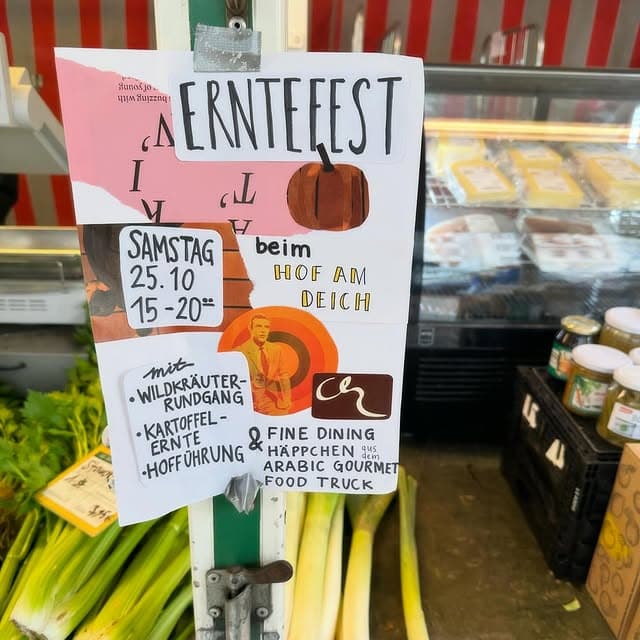 buzzing with
of young
ERNTEFEST
SAMSTAG
25.10
15-20⁰⁰
beim
HOF AM
DEICH
mit
• WILDKRÄUTER-
RUNDGANG
• KARTOFFEL-
ERNTE
• HOFFÜHRUNG
& FINE DINING
HÄPPCHEN aus dem
ARABIC GOURMET
FOOD TRUCK